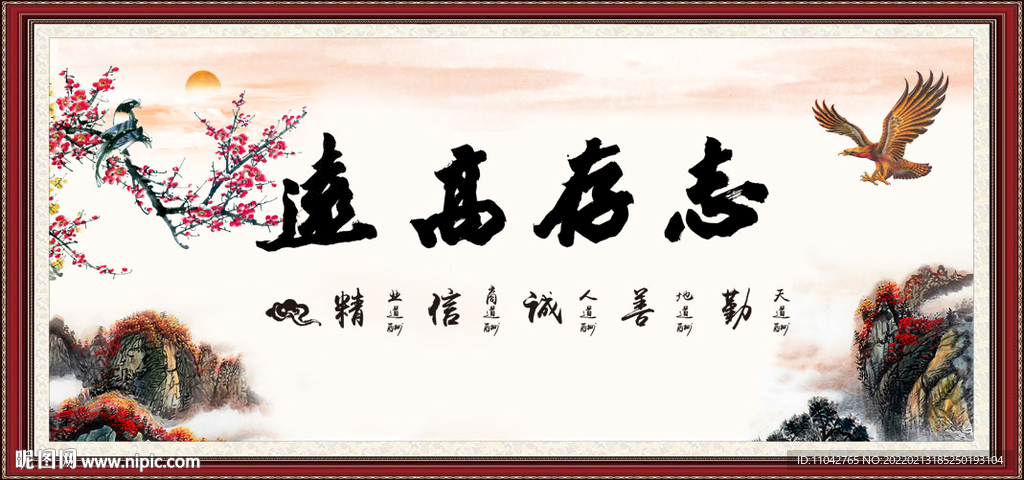 志存高遠
天道酬勤
地道酬善
人道酬诚
商道酬信
业道酬精
昵图网 www.nipic.com
ID:11042765 NO:20220213185250193104